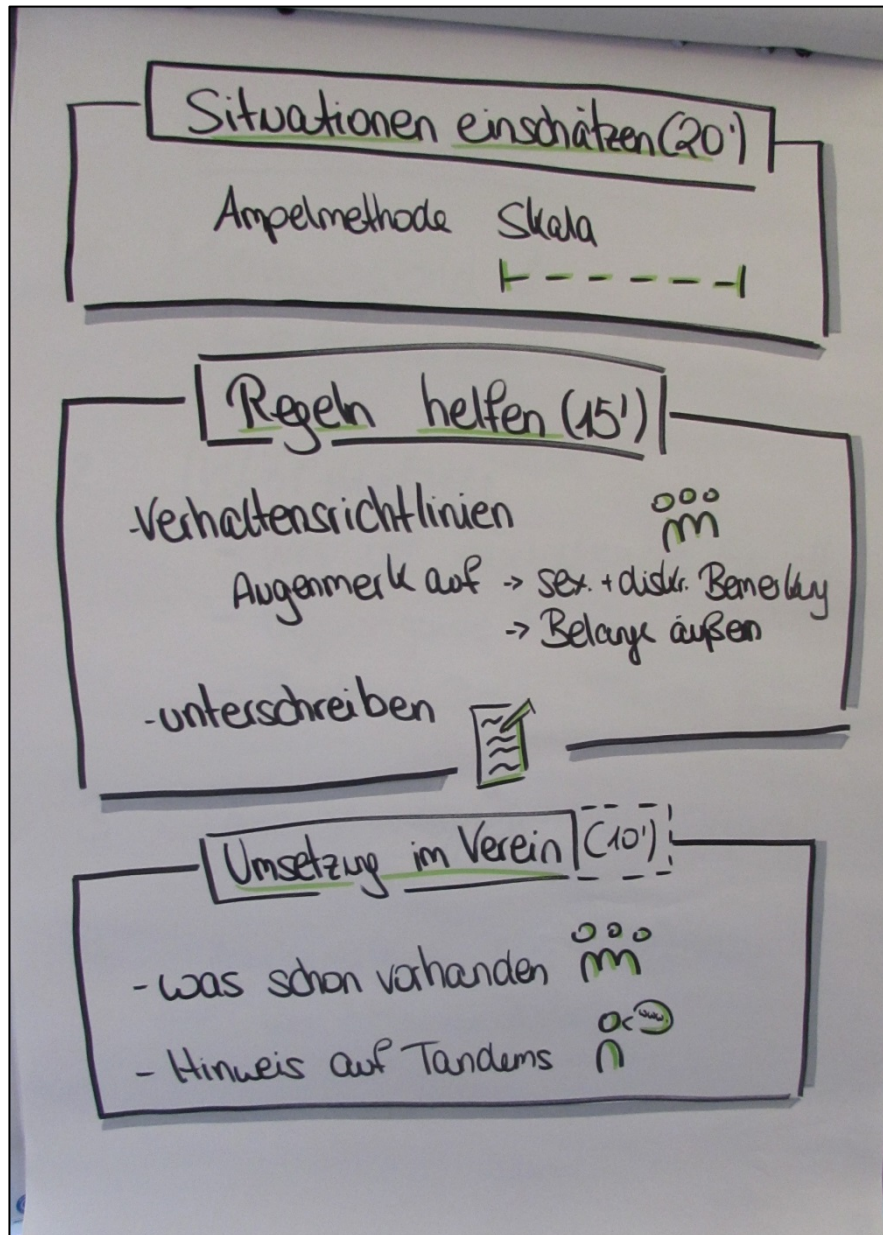 Situationen einschätzen (20')
Ampelmethode Skala
Regeln helfen (15')
-Verhaltensrichtlinien
Augenmerk auf -> sex. + diskr. Bemerkung
-> Belange äußern
-unterschreiben
Umsetzung im Verein (10')
- was schon vorhanden
- Hinweis auf Tandems